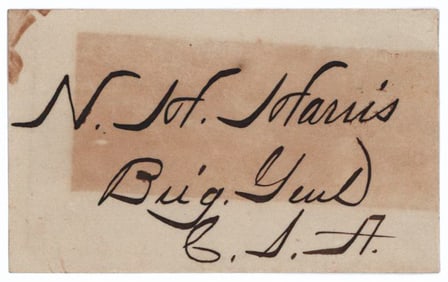 N. H. Harris
Brig. Genl
C. S. A.